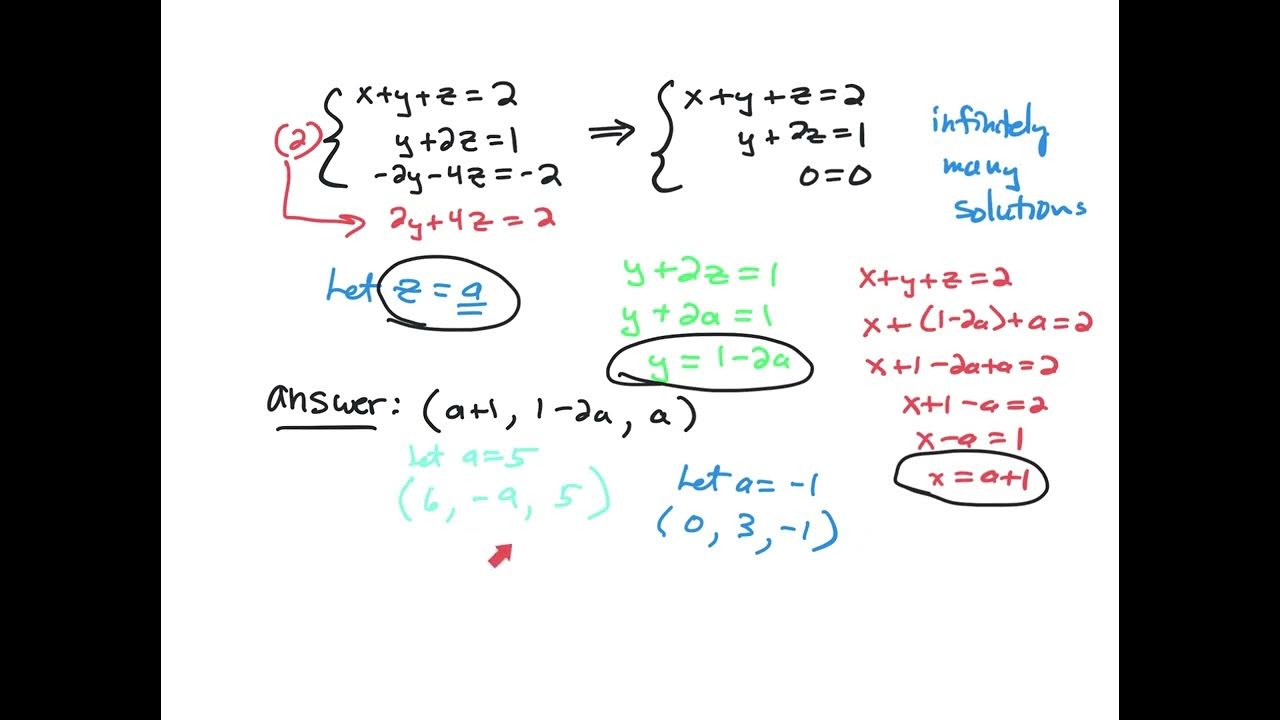 x+y+z=2
(2) y+2z=1
-2y-4z=-2
2y+4z=2
⇒
x+y+z=2
y+2z=1
0=0
infinitely
many
solutions
Let z=a
y+2z=1
y+2a=1
y=1-2a
x+y+z=2
x+(1-2a)+a=2
x+1-2a+a=2
x+1-a=2
x-a=1
x=a+1
answer: (a+1, 1-2a, a)
Let a=5
(6, -9, 5)
Let a=-1
(0, 3, -1)